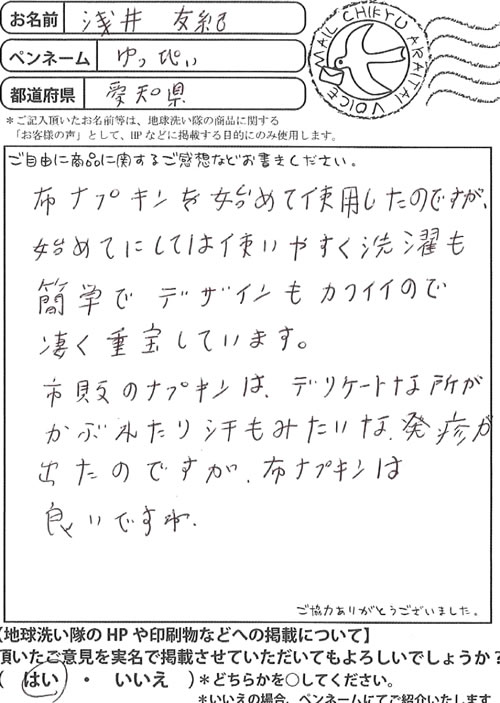 お名前 浅井 友紀
ペンネーム ゆっぴぃ
都道府県 愛知県
MAIL CHIKYU ARAITAI VOICE
＊ご記入頂いたお名前等は、地球洗い隊の商品に関する
「お客様の声」として、HPなどに掲載する目的にのみ使用します。
ご自由に商品に関するご感想などお書きください。
布ナプキンを始めて使用したのですが、
始めてにしては使いやすく洗濯も
簡単で デザインもカワイイので
凄く重宝しています。
市販のナプキンは、デリケートな所が
かぶれたり汗もみたいな、発疹が
出たのですが、布ナプキンは
良いですね。
ご協力ありがとうございました。
【地球洗い隊のHPや印刷物などへの掲載について】
頂いたご意見を実名で掲載させていただいてもよろしいでしょうか？
( はい ・ いいえ )＊どちらかを○してください。
＊いいえの場合、ペンネームにてご紹介いたします